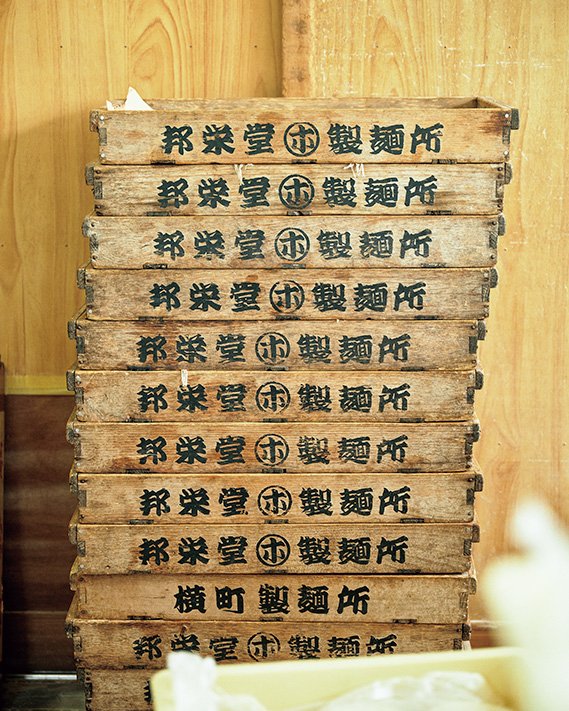 邦栄堂 ㋭ 製麺所
邦栄堂 ㋭ 製麺所
邦栄堂 ㋭ 製麺所
邦栄堂 ㋭ 製麺所
邦栄堂 ㋭ 製麺所
邦栄堂 ㋭ 製麺所
邦栄堂 ㋭ 製麺所
邦栄堂 ㋭ 製麺所
邦栄堂 ㋭ 製麺所
横町製麺所
邦栄堂 ㋭ 製麺所